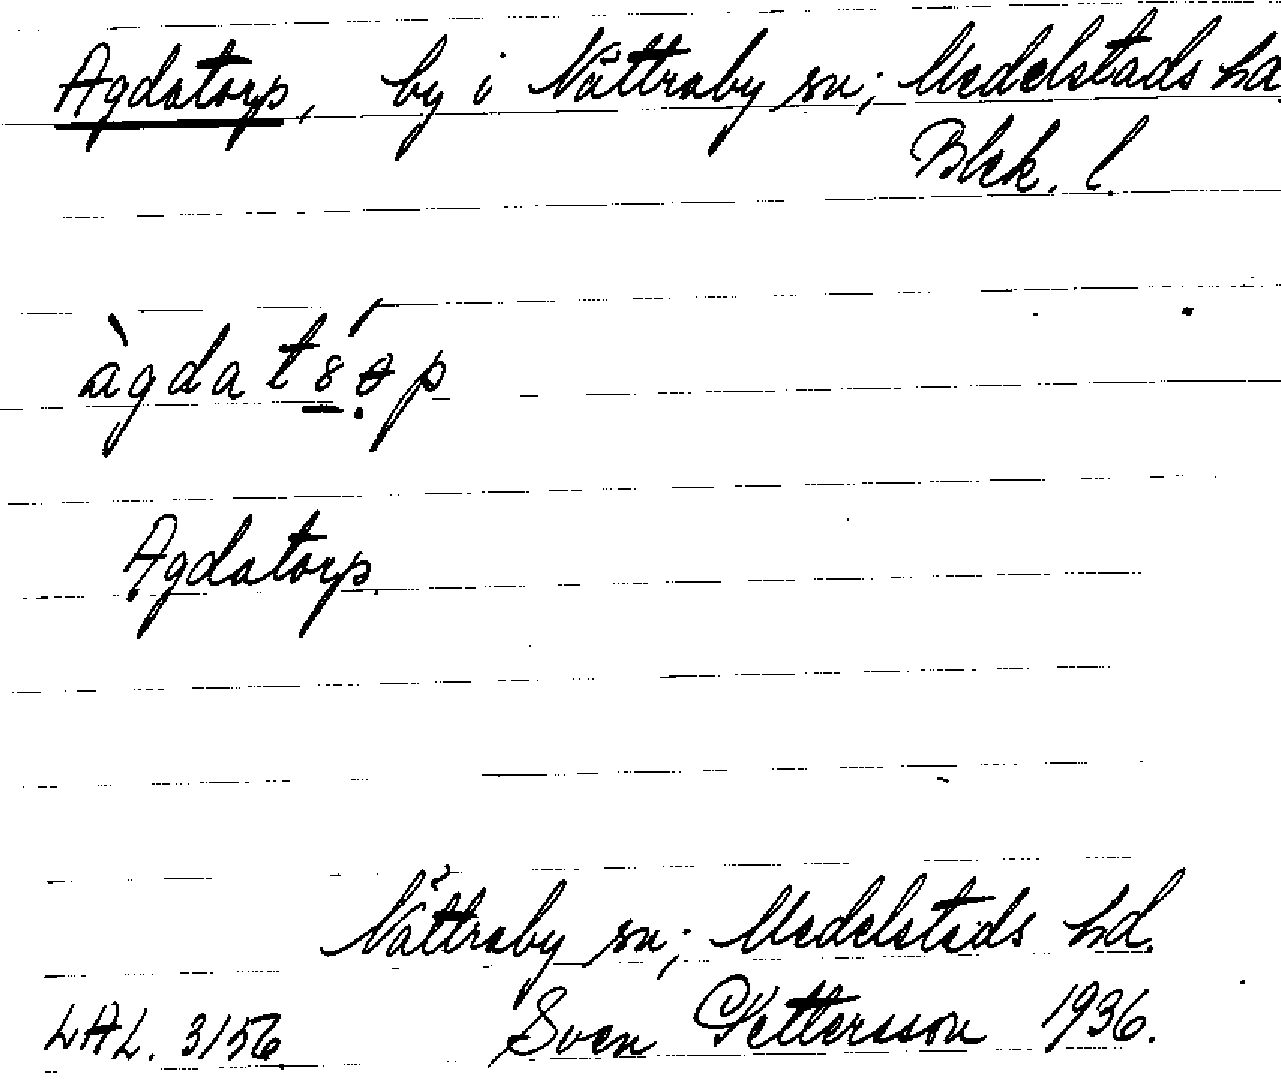 Agdatorp, by i Nättraby sn; Medelstads hd.
Blek. l.
Agdatorp.
Nättraby sn; Medelstads hd.
LAL. 3156 Sven Pettersson 1936.